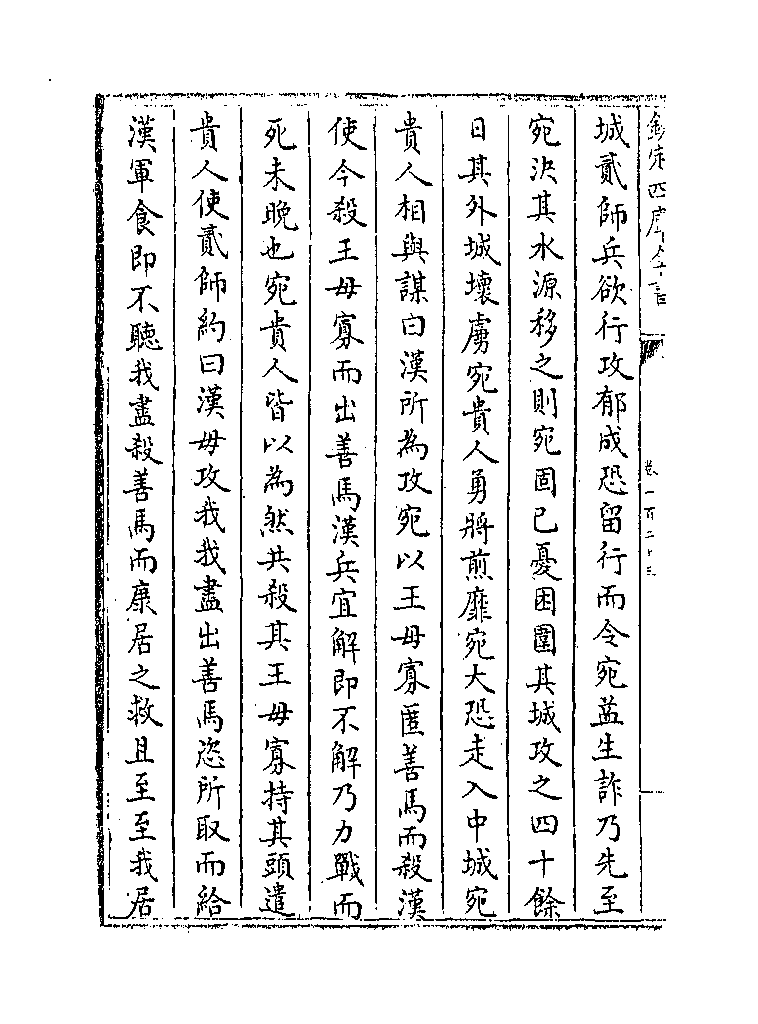 欽定四庫全書
卷一百二十三
城貳師兵欲行攻郁成恐留行而令宛益生詐乃先至
宛決其水源移之則宛固已憂困圍其城攻之四十餘
日其外城壞虜宛貴人勇將煎靡宛大恐走入中城宛
貴人相與謀曰漢所為攻宛以王毋寡匿善馬而殺漢
使今殺王毋寡而出善馬漢兵宜解即不解乃力戰而
死未晚也宛貴人皆以為然共殺其王毋寡持其頭遣
貴人使貳師約曰漢毋攻我我盡出善馬恣所取而給
漢軍食即不聽我盡殺善馬而康居之救且至至我居